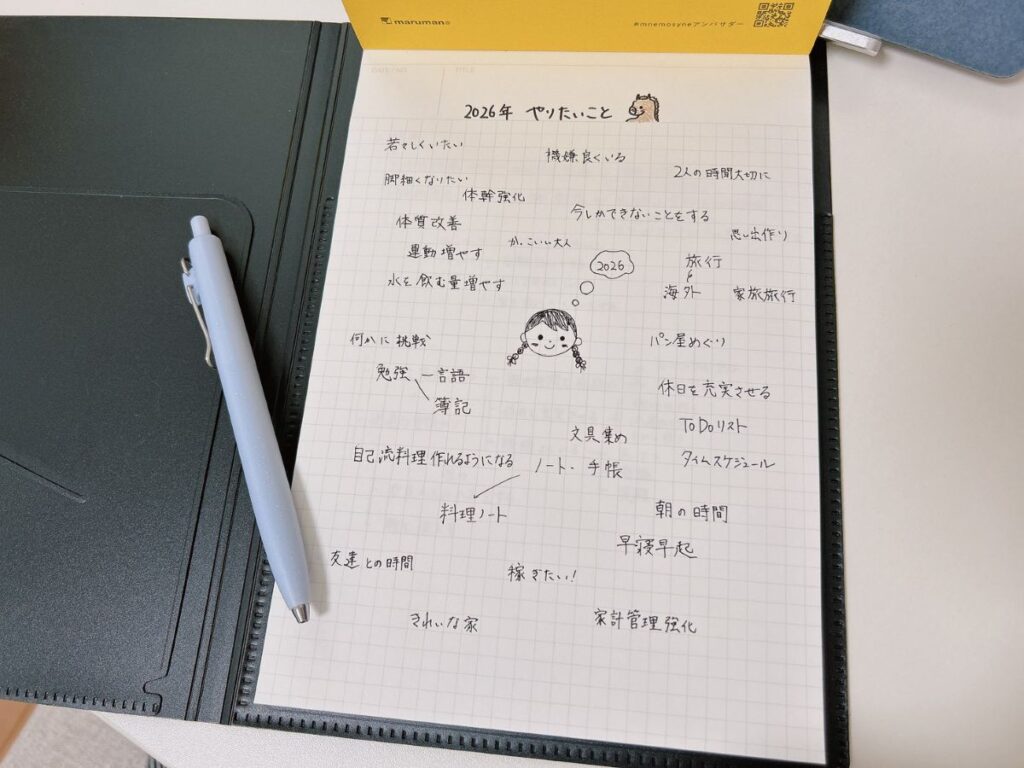 maruman
#mnemosyneアンバサダー
DATE / NO.
TITLE
2026年 やりたいこと
若々しくいたい
機嫌良くいる
2人の時間大切に
脚細くなりたい
体幹強化
今しかできないことをする
体質改善
思い出作り
かっこいい大人
運動増やす
2026
旅行
水を飲む量増やす
海外
家族旅行
何かに挑戦
パン屋めぐり
勉強 言語
簿記
休日を充実させる
ToDoリスト
文具集め
自己流料理作れるようになる
ノート・手帳
タイムスケジュール
料理ノート
朝の時間
早寝早起
友達との時間
稼ぎたい!
きれいな家
家計管理強化